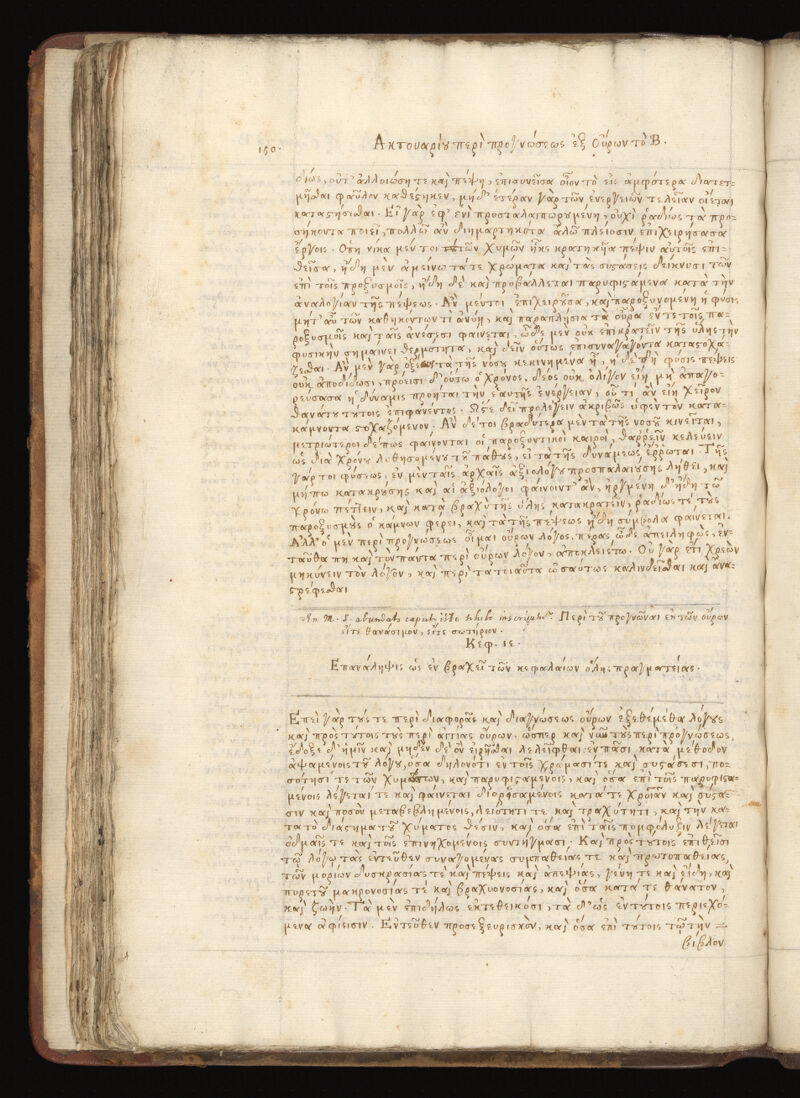 150.
Ακτουαρίου περὶ προγνώσεως ἐξ Οὔρων τὸ Β.
οίως, οὔτ' ἀλλοιώση τε καὶ πέψη, ἐπισυνεῖσα οἷον τὸ εἰς ἀμφότερα διατετ-
μῆσθαι φαῦλον καθέστηκεν, μηδ' ἑτέραν γὰρ τῶν ἐνεργειῶν τελείαν οἴεται
καταστήσεσθαι. Εἰ γὰρ ἐφ' ἑνὶ προσταλαιπωρουμένη, οὐχὶ ῥαδίως τὰ προ-
σήκοντα ποιεῖ, πολλῷ ἂν διημαρτηκότα ἄλλω πλείοσιν ἐπιχειρήσασα
ἔργοις. Οπηνίκα μέν τοι τῶν χυμῶν κρατηκῆα πέψιν αὐτοῖς ἐπι-
θεῖσα, ἤδη μὲν ἀμείνω τά τε χρώματα καὶ τὰς συστάσεις δείκνυσι τῶν
ἐπὶ τοῖς προξυσμοῖς, ἤδη δὲ καὶ προβάλλεται παρυφιστάμενα κατὰ τὴν
ἀναλογίαν τῆς πέψεως. Αν μέντοι ἐπιχειροῦσα, καὶ παροξυνομένη ἡ φύσις
μήτ' αὖ τῶν καθηκόντων τι ἀνύη, καὶ παραπλήσια τὰ οὖρα ἔν τε τοῖς πα-
ροξυσμοῖς καὶ ταῖς ἀνέσεσι φαίνεται, ὧδε μὲν οὐκ ἐπικρατεῖν τῆς ὕλης τὴν
φυσικὴν σημαίνει θερμότητα, καὶ δεῖν οὕτως ἐπισυναγαγόντα καταστοχά-
ζεσθαι. Αν μὲν γὰρ ὀξέως τὰ τῆς νόσου κεκινημένα ᾖ, ἡ δὲ δὴ φύσις πέψεις
οὐκ ἀποδίδωσι, πρόεισι δ' οὕτω ὁ χρόνος, δέος οὐκ ὀλίγον εἴη μὴ ἀπαγο-
ρεύσασα ἡ δύναμις προῆται τὴν ἑαυτῆς ἐνέργειαν, οὗ τι ἂν εἴη χεῖρον
θανάτου τούτοις ἐπιφανέντος. Ωστε δεῖ προλέγειν ἀκριβῶς ὑφέντον κατα-
κάμνοντα στοχαζόμενον. Αν δέ τοι βραδύτερα μὲν τὰ τῆς νόσου κινεῖται,
μετριώτεροι δέ πως φαίνονται οἱ παροξυντικοὶ καιροὶ, θαρρεῖν κελεύειν
ὡς διὰ χρόνου λυθησομένου τοῦ πάθους, εἰ τὰ τῆς δυνάμεως ἔρρωται. Τῆς
γάρ τοι φύσεως, ἐν μὲν ταῖς ἀρχαῖς ἀξιολόγου προσπαλαιούσης λήθει, καὶ
μήπω κατακρούσης καὶ αἱ ἀξιόλογοι φαίνοιντ' ἂν, ἠργμένη δ' ἤδη τῷ
χρόνῳ πέττειν, καὶ κατὰ βραχὺ τῆς ὕλης κατακρατεῖν, ῥαδίως τε τοὺς
παροξυσμοὺς ὁ κάμνων φέρει, καὶ τὰ τῆς πέψεως ἤδη σύμβολα φαίνεται.
Αλλ' ὁ μὲν περὶ προγνώσεως οἶμαι οὔρων λόγος, πέρας ὧδε ἀπειληφὼς, ἐν-
ταῦθά πη καὶ τὸν πάντα περὶ οὔρων λόγον, ἀποκλείετω. Οὐ γὰρ ἔτι χρεὼν
μηκύνειν τὸν λόγον, καὶ περὶ τὰ τοιαῦτα ὡσαύτως καλινδεῖσθαι καὶ ἀνα-
στρέφεσθαι
In M. S. abundat caput isto titulo inscriptum. Περὶ τοῦ προγνῶναι ἐκ τῶν οὔρων
εἴτε θανάσιμον, εἴτε σωτήριον.
Κεφ. ιε.
Επανάληψις ὡς ἐν βραχεῖ τῶν κεφαλαίων ὅλης πραγματείας.
Επεὶ γὰρ τούς τε περὶ διαφορᾶς καὶ διαγνώσεως οὔρων ἐξεθέμεθα λόγους
καὶ πρὸς τούτοις τοὺς περὶ αἰτίας οὔρων, ὥσπερ καὶ νῦν τοὺς περὶ προγνώσεως,
ἔδοξε δ' ἡμῖν καὶ μηδὲν δέον εἰρῆσθαι λελεῖφθαι ἐν πᾶσι κατὰ μέθοδον
ἁψαμένοις τοῦ λόγου, ὅσα δηλονότι ἐν τοῖς χρώμασί τε καὶ συστάσεσι, πο-
σότησί τε τῶν χυμάτων, καὶ παρυφισταμένοις, καὶ ὅσα ἐπὶ τοῖς παρυφιστα-
μένοις λέγεταί τε καὶ φαίνεται διορισαμένοις κατά τε χροιὰν καὶ σύστα-
σιν καὶ ποσὸν μεταβεβλημένοις, λειότητί τε καὶ τραχύτητι, καὶ τὴν κα-
τὰ τὸ διάστημα τοῦ χύματος θέσιν, καὶ ὅσα ἐπὶ ταῖς πομφόλυξιν λέγεται
ὀσμαῖς τε καὶ τοῖς ἐπινηχομένοις συντήγμασι. Καὶ πρὸς τούτοις ἐπιθεῖσι
τῷ λόγῳ τὰς ἐντεῦθεν συναγομένας συμπαθείας τε καὶ πρωτοπαθείας
τῶν μορίων δυσκρασίας τε καὶ πέψεις καὶ ἀπεψίας, γένη τε καὶ εἴδη, καὶ
πυρετοῦ μακρονοσίας τε καὶ βραχυονοσίας, καὶ ὅσα κατά τε θάνατον,
καὶ ζωήν. Τὰ μὲν ἐπιδήλως ἐκτεθεικόσι, τὰ δ' ὡς ἐν τούτοις περιεχό-
μενα ἀφίεισιν. Εντεῦθεν προσεξευρίσκον, καὶ ὅσα ἐπὶ τούτοις τῶ τὴν
βίβλον